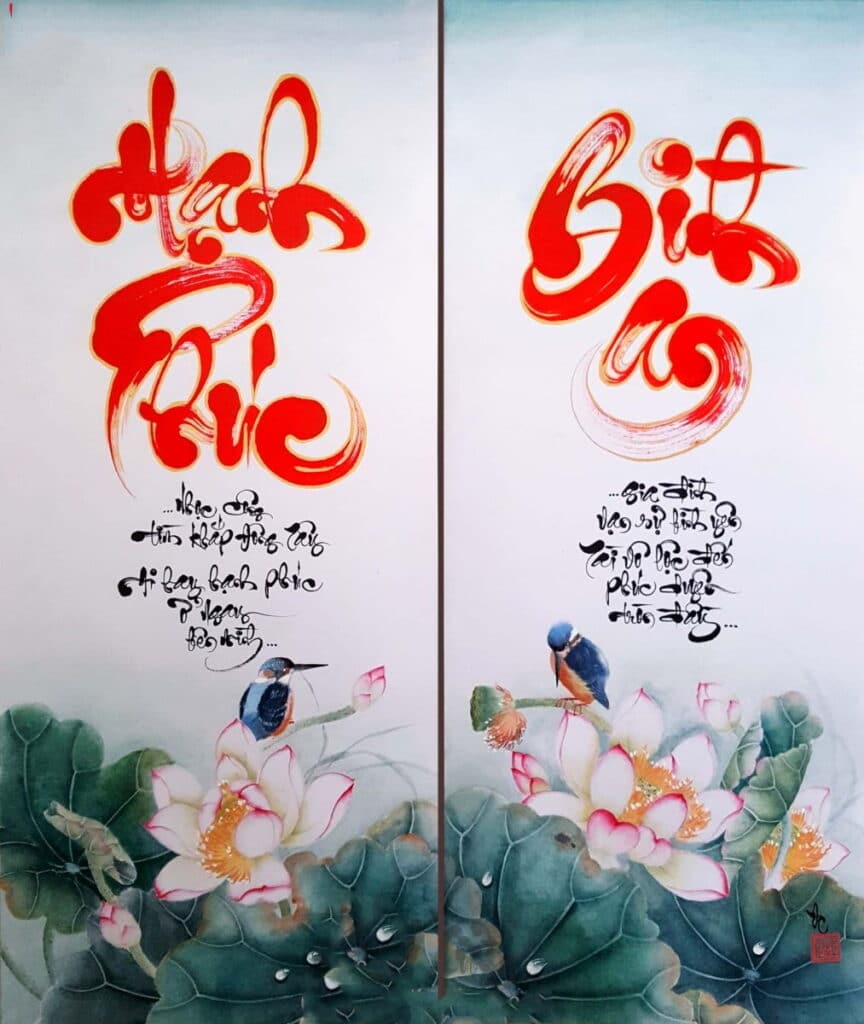 Hạnh
Phúc
...Nhọc công
tìm khắp đông tây
Ai hay hạnh phúc
ở ngay
bên mình...
Bình
an
...gia đình
vạn sự bình yên
Tài vô lộc đến
phúc duyên
tròn đầy...